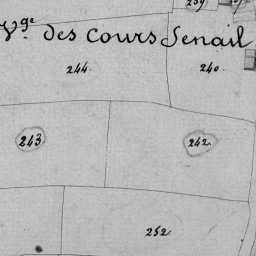 239
Vge des Cours Senail
244
240
243
242
252